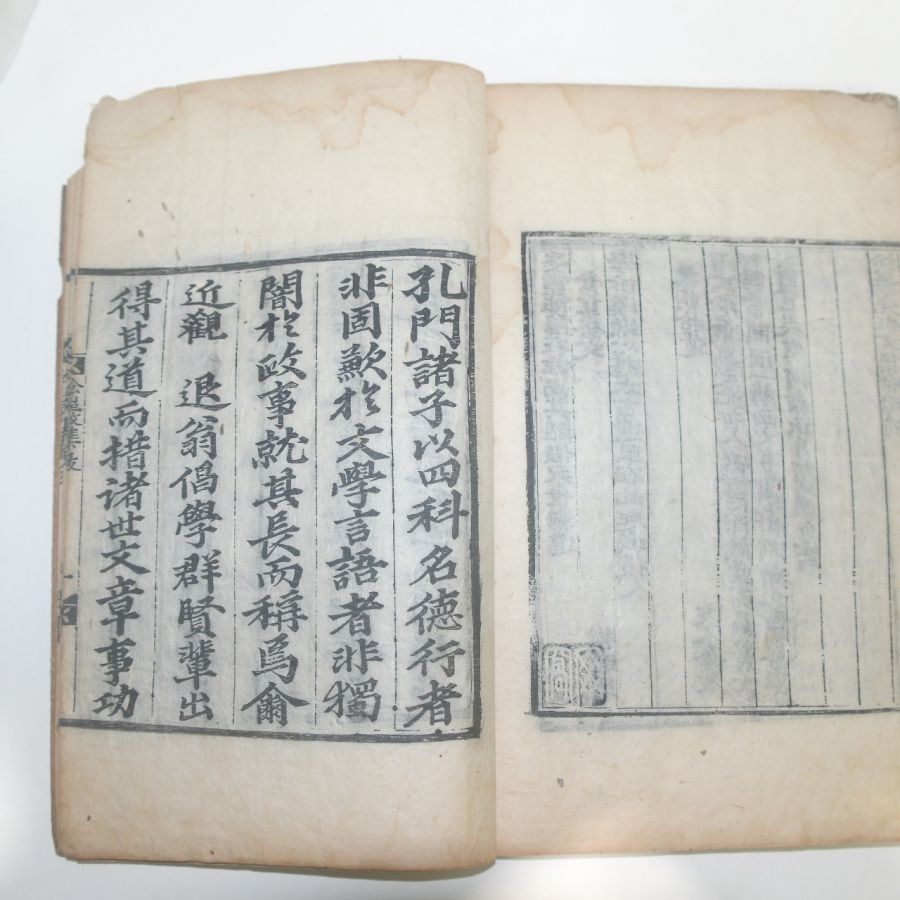 孔門諸子以四科名德行者
非固歉於文學言語者非獨
闇於政事就其長而稱焉爾
近觀 退翁倡學群賢輩出
得其道而措諸世文章事功